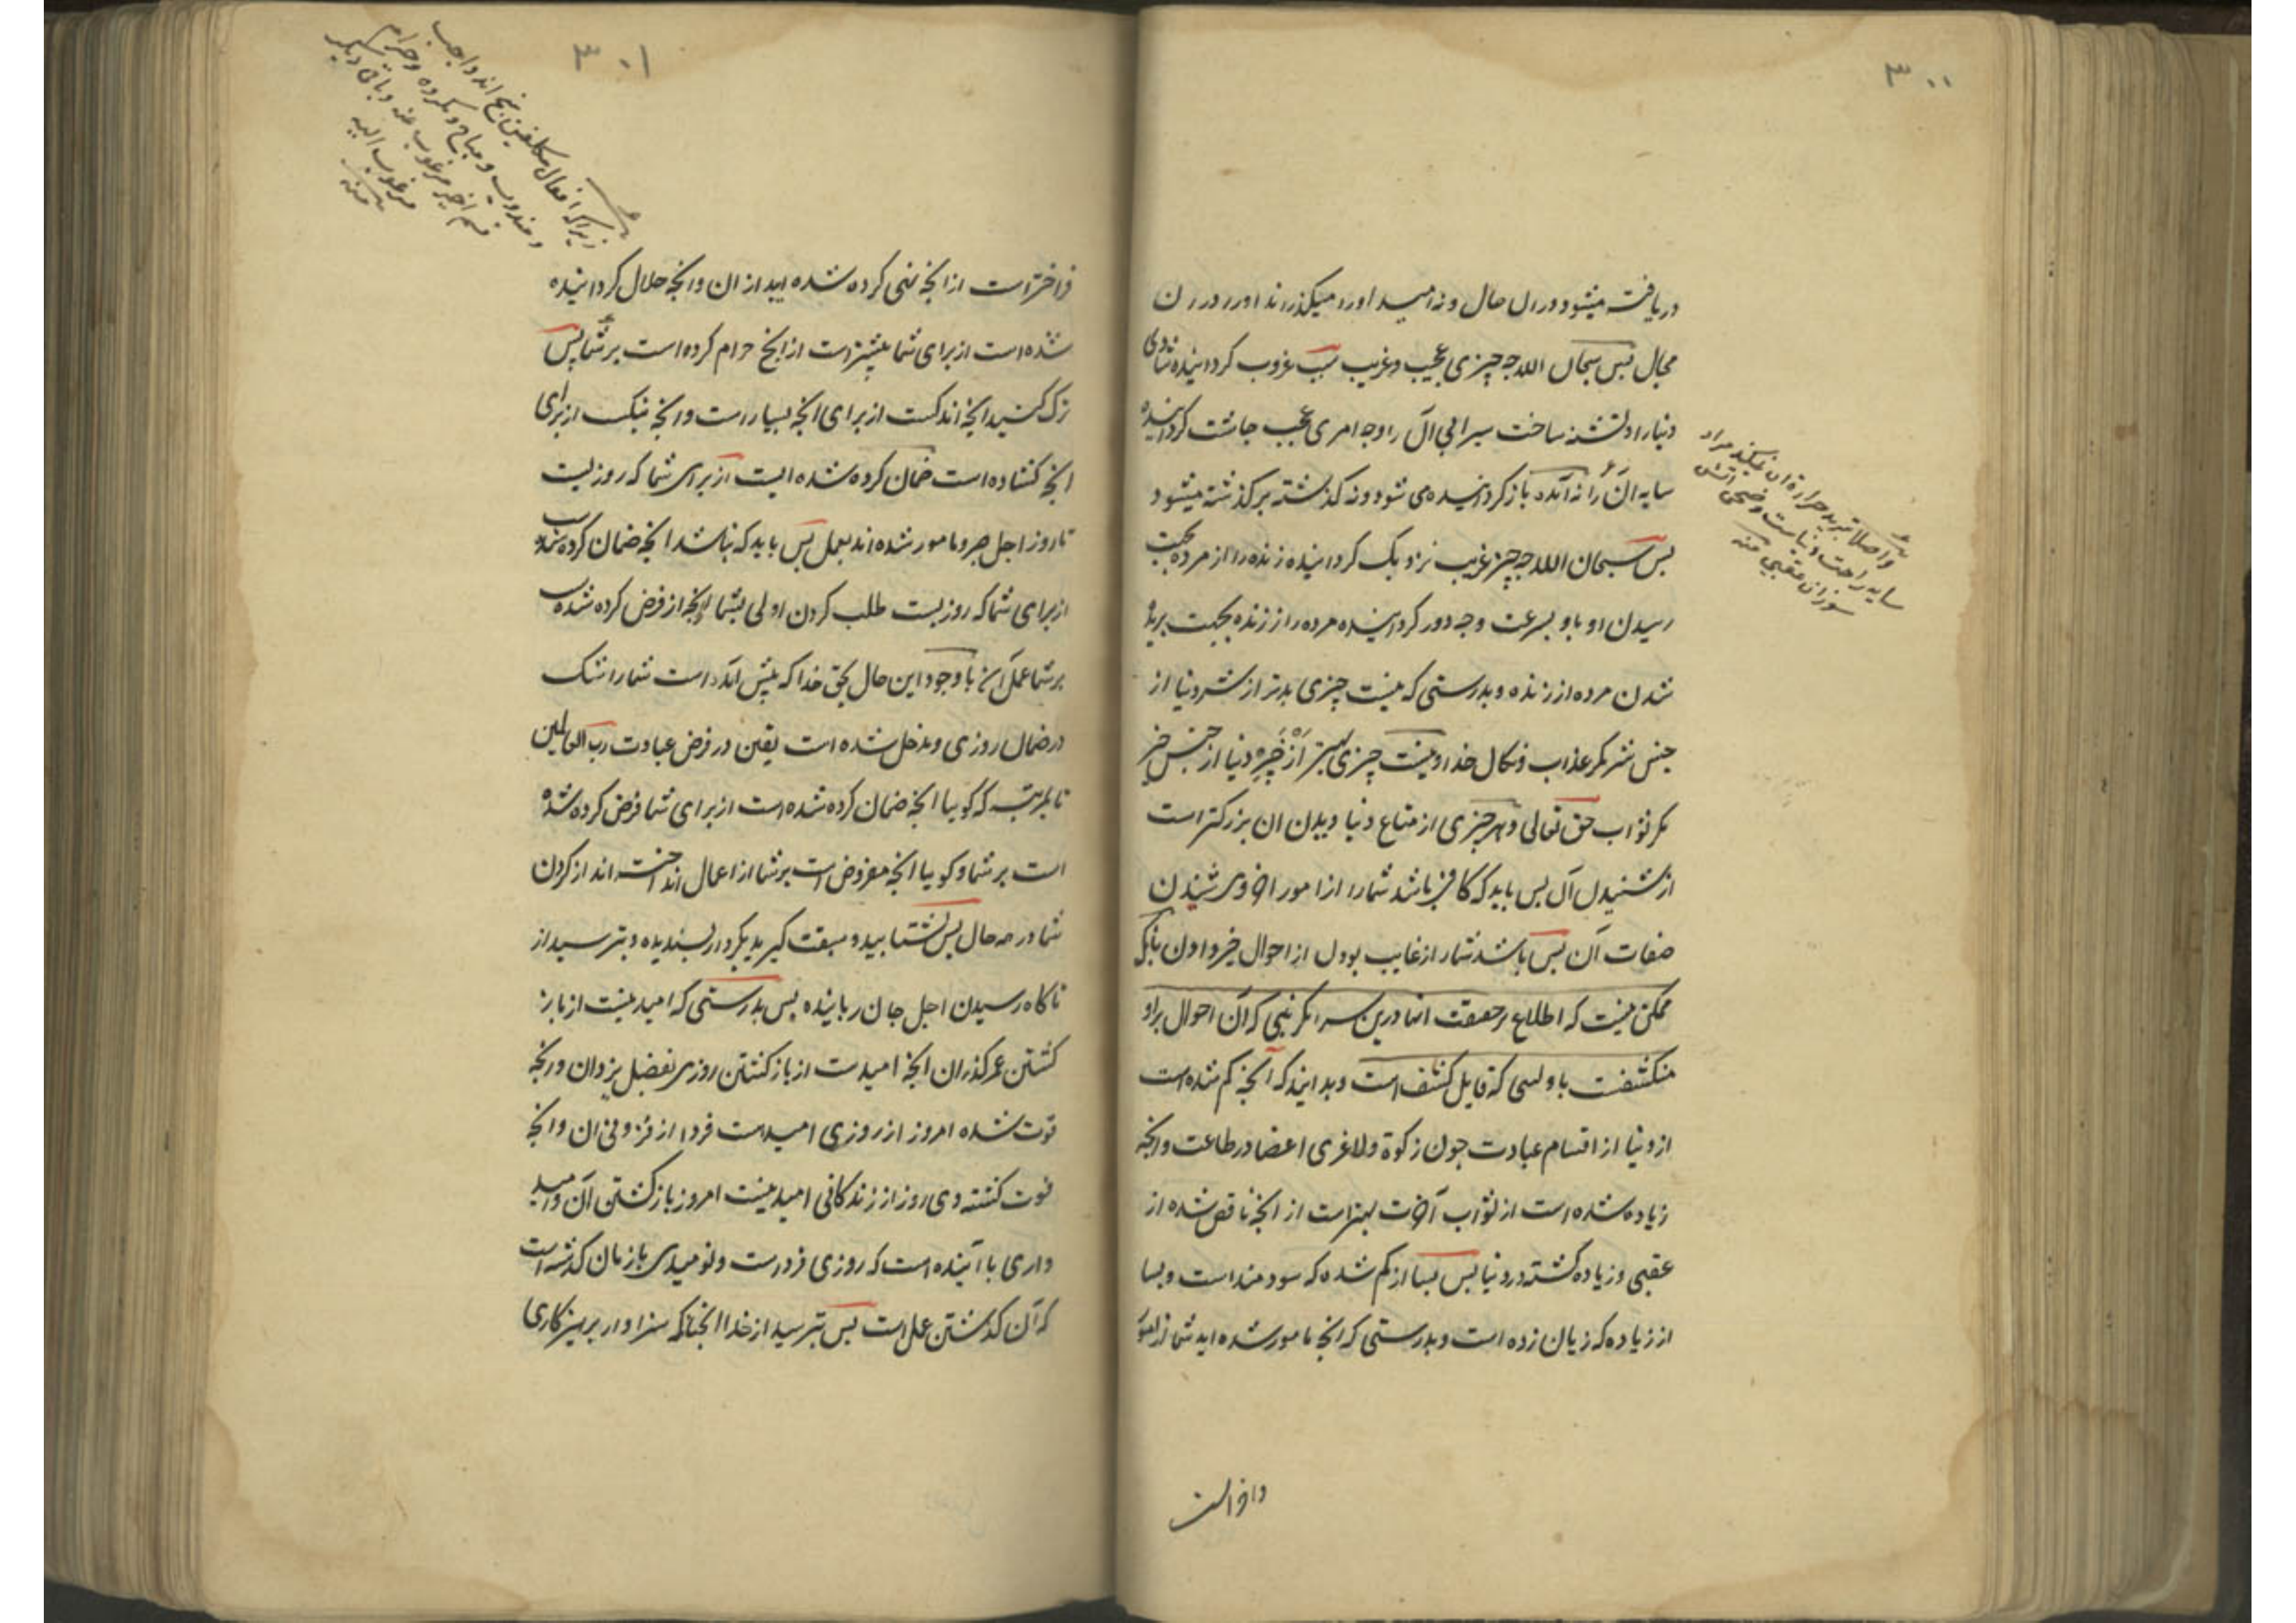 ۳۰۰
دریافته میشود دران حال و نه امید اورا میکذراند اورا دران
مجال پس سبحان الله چه چیزی عجیب و غریب سبب غروب کردانیده شادی
دنیا را و تشنه ساخت سیرابی آن را و چه امری عجب چاشت کردانیده
سایه آن را نه آمده بازکردانیده می شود و نه کذشته برکذشته میشود
پس سبحان الله چه چیز غریب نزدیک کردانیده زنده را از مرده بجهت
رسیدن او باو بسرعت و چه دور کردانیده مرده را از زنده بجهت بریده
شدن مرده از زنده و بدرستی که نیست چیزی بدتر از شر دنیا از
جنس شر مکر عذاب و نکال خدا و نیست چیزی بهتر از خیر دنیا از جنس خیر
مکر ثواب حق تعالی و هر چیزی از متاع دنیا دیدن ان بزرکتر است
از شنیدن آن پس باید که کافی باشد شما را از امور اخروی شنیدن
صفات آن پس باشد شما را از غایب بودن از احوال خبر دادن بانکه
ممکن نیست که اطلاع بر حقیقت انها درین سرا مکر نبی که آن احوال براو
منکشفست یا ولیی که قابل کشف است و بدانیدکه آنچه کم شده است
از دنیا از اقسام عبادت چون زکوة و لاغری اعضا در طاعت و انچه
زیاده شده است از ثواب آخرت بهتر است از انچه ناقص شده از
عقبی و زیاده کشته در دنیا پس بسا از کم شده که سودمند است و بسا
از زیاده که زیان زده است و بدرستی که انچه مامور شده اید شما از امور
وا صلا تبرید حرارة ان نمیکند مراد
سایه راحت دنیاست و ضحی اتش
سوزان عقبی منه
وافراست
۳۰۱
زیراکه افعال مکلفین پنج اند واجب
و مندوب و مباح و مکروه و حرام
قسم اخیر مرغوب عنه و باقی دیکر
مرغوب الیه
منه
فراختر است از انچه نهی کرده شده اید از ان و انچه حلال کردانیده
شده است از برای شما بیشتر است از انچه حرام کرده است بر شما پس
ترک کنید انچه اندکست از برای انچه بسیار است و انچه تنکست از برای
انچه کشاده است ضمان کرده شده است از برای شما که روزیست
تا روز اجل و مامور شده اند بعمل پس باید که نباشد انچه ضمان کرده شده
از برای شما که روزیست طلب کردن اولی بشما از انچه فرض کرده شده
بر شما عمل آن با وجود این حال بحق خدا که پیش آمده است شما را شک
در ضمان روزی و مدخل شده است یقین در فرض عبادت رب العالمین
تا بمرتبه که کویا انچه ضمان کرده شده است از برای شما فرض کرده شده
است بر شما و کویا انچه مفروض است بر شما از اعمال انداخته اند از کردن
شما در همه حال پس بشتابید و سبقت کیرید بکردار پسندیده و بترسید از
ناکاه رسیدن اجل جان رباینده پس بدرستی که امید نیست از باز
کشتن عمر کذران انچه امیدست از بازکشتن روزی بفضل یزدان و انچه
فوت شده امروز از روزی امید است فردا از فزونی ان و انچه
فوت کشته دی روز از زندکانی امید نیست امروز بازکشتن آن و امید
داری با آینده است که روزی فرداست و نومیدی بازمان کذشته است
که آن کذشتن عمل است پس بترسید از خدا انچنانکه سزاوار پرهیزکاری